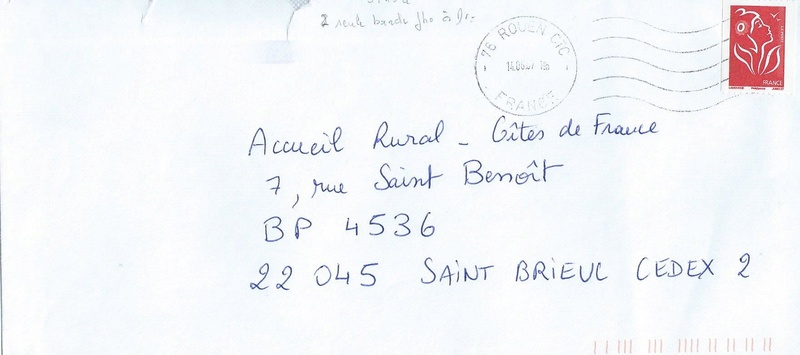 2 seule bande pho à
76 ROUEN CIC
14.06.07 19h
FRANCE
FRANCE
Accueil Rural - Gîtes de France
7, rue Saint Benoît
BP 4536
22 045 SAINT BRIEUC CEDEX 2